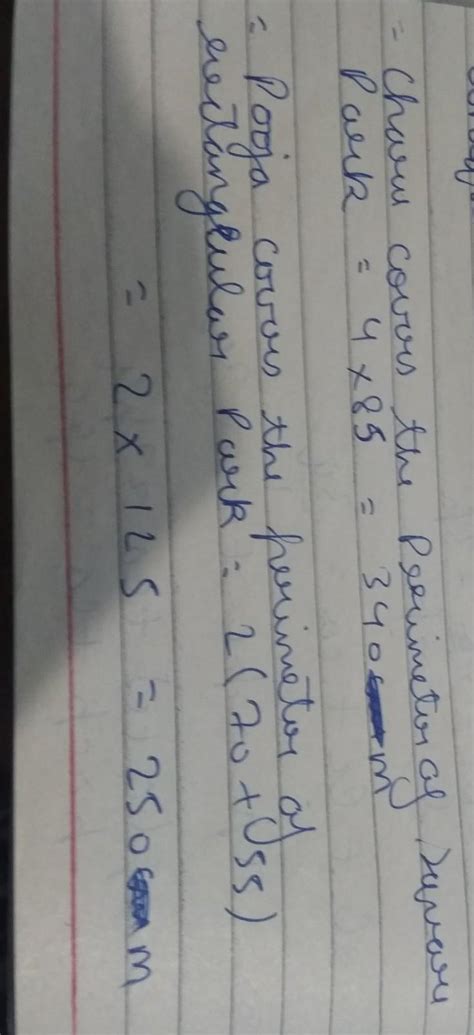 = Charu covers the Perimeter of square
Park = 4 × 85 = 340 m
= Pooja covers the perimeter of
rectangular Park = 2(70 + 55)
= 2 × 125 = 250 m